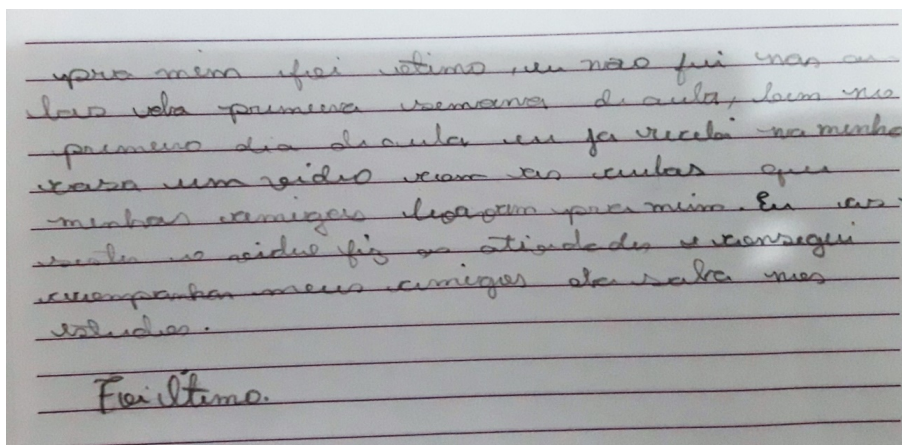 pra mim foi otimo, eu não fui nas au-
las da primeira semana de aula, bem no
primeiro dia de aula eu ja recebi na minha
casa um vidio com as aulas que
minhas amigas levaram pra mim. Eu as-
sisti no vidio fiz as atividades e consegui
acompanhar meus amigos da sala nos
estudos.
Foi Ótimo.